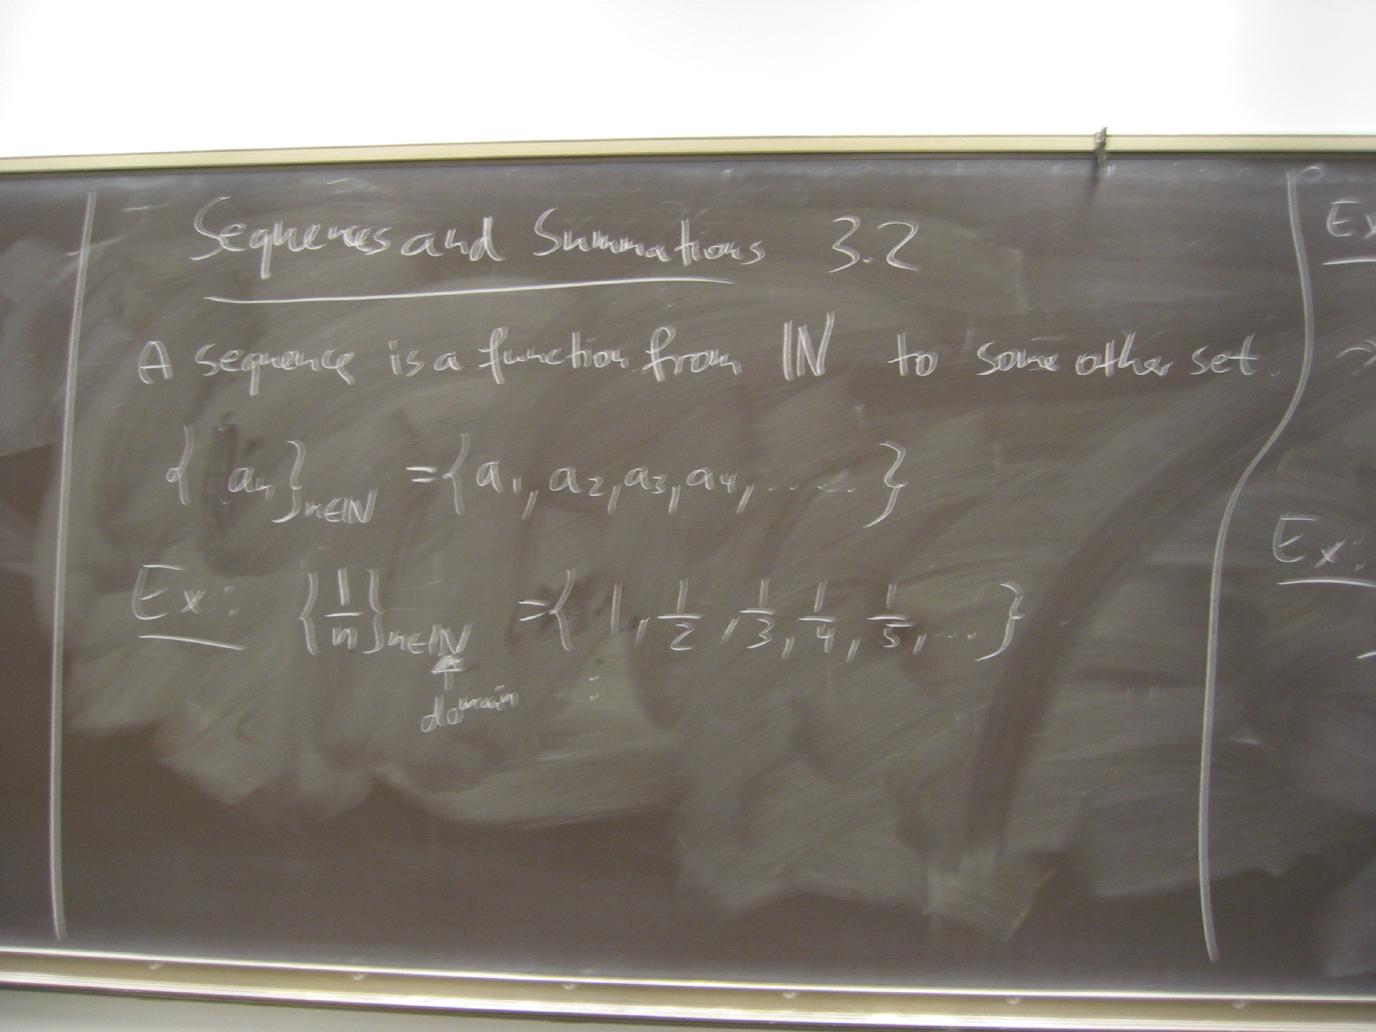 Sequences and Summations 3.2
A sequence is a function from ℕ to some other set.
{ aₙ }ₙ∈ℕ = { a₁, a₂, a₃, a₄, ...... }
Ex: { 1/n }ₙ∈ℕ = { 1, 1/2, 1/3, 1/4, 1/5, ... }
↑ :
domain
Ex
Ex: